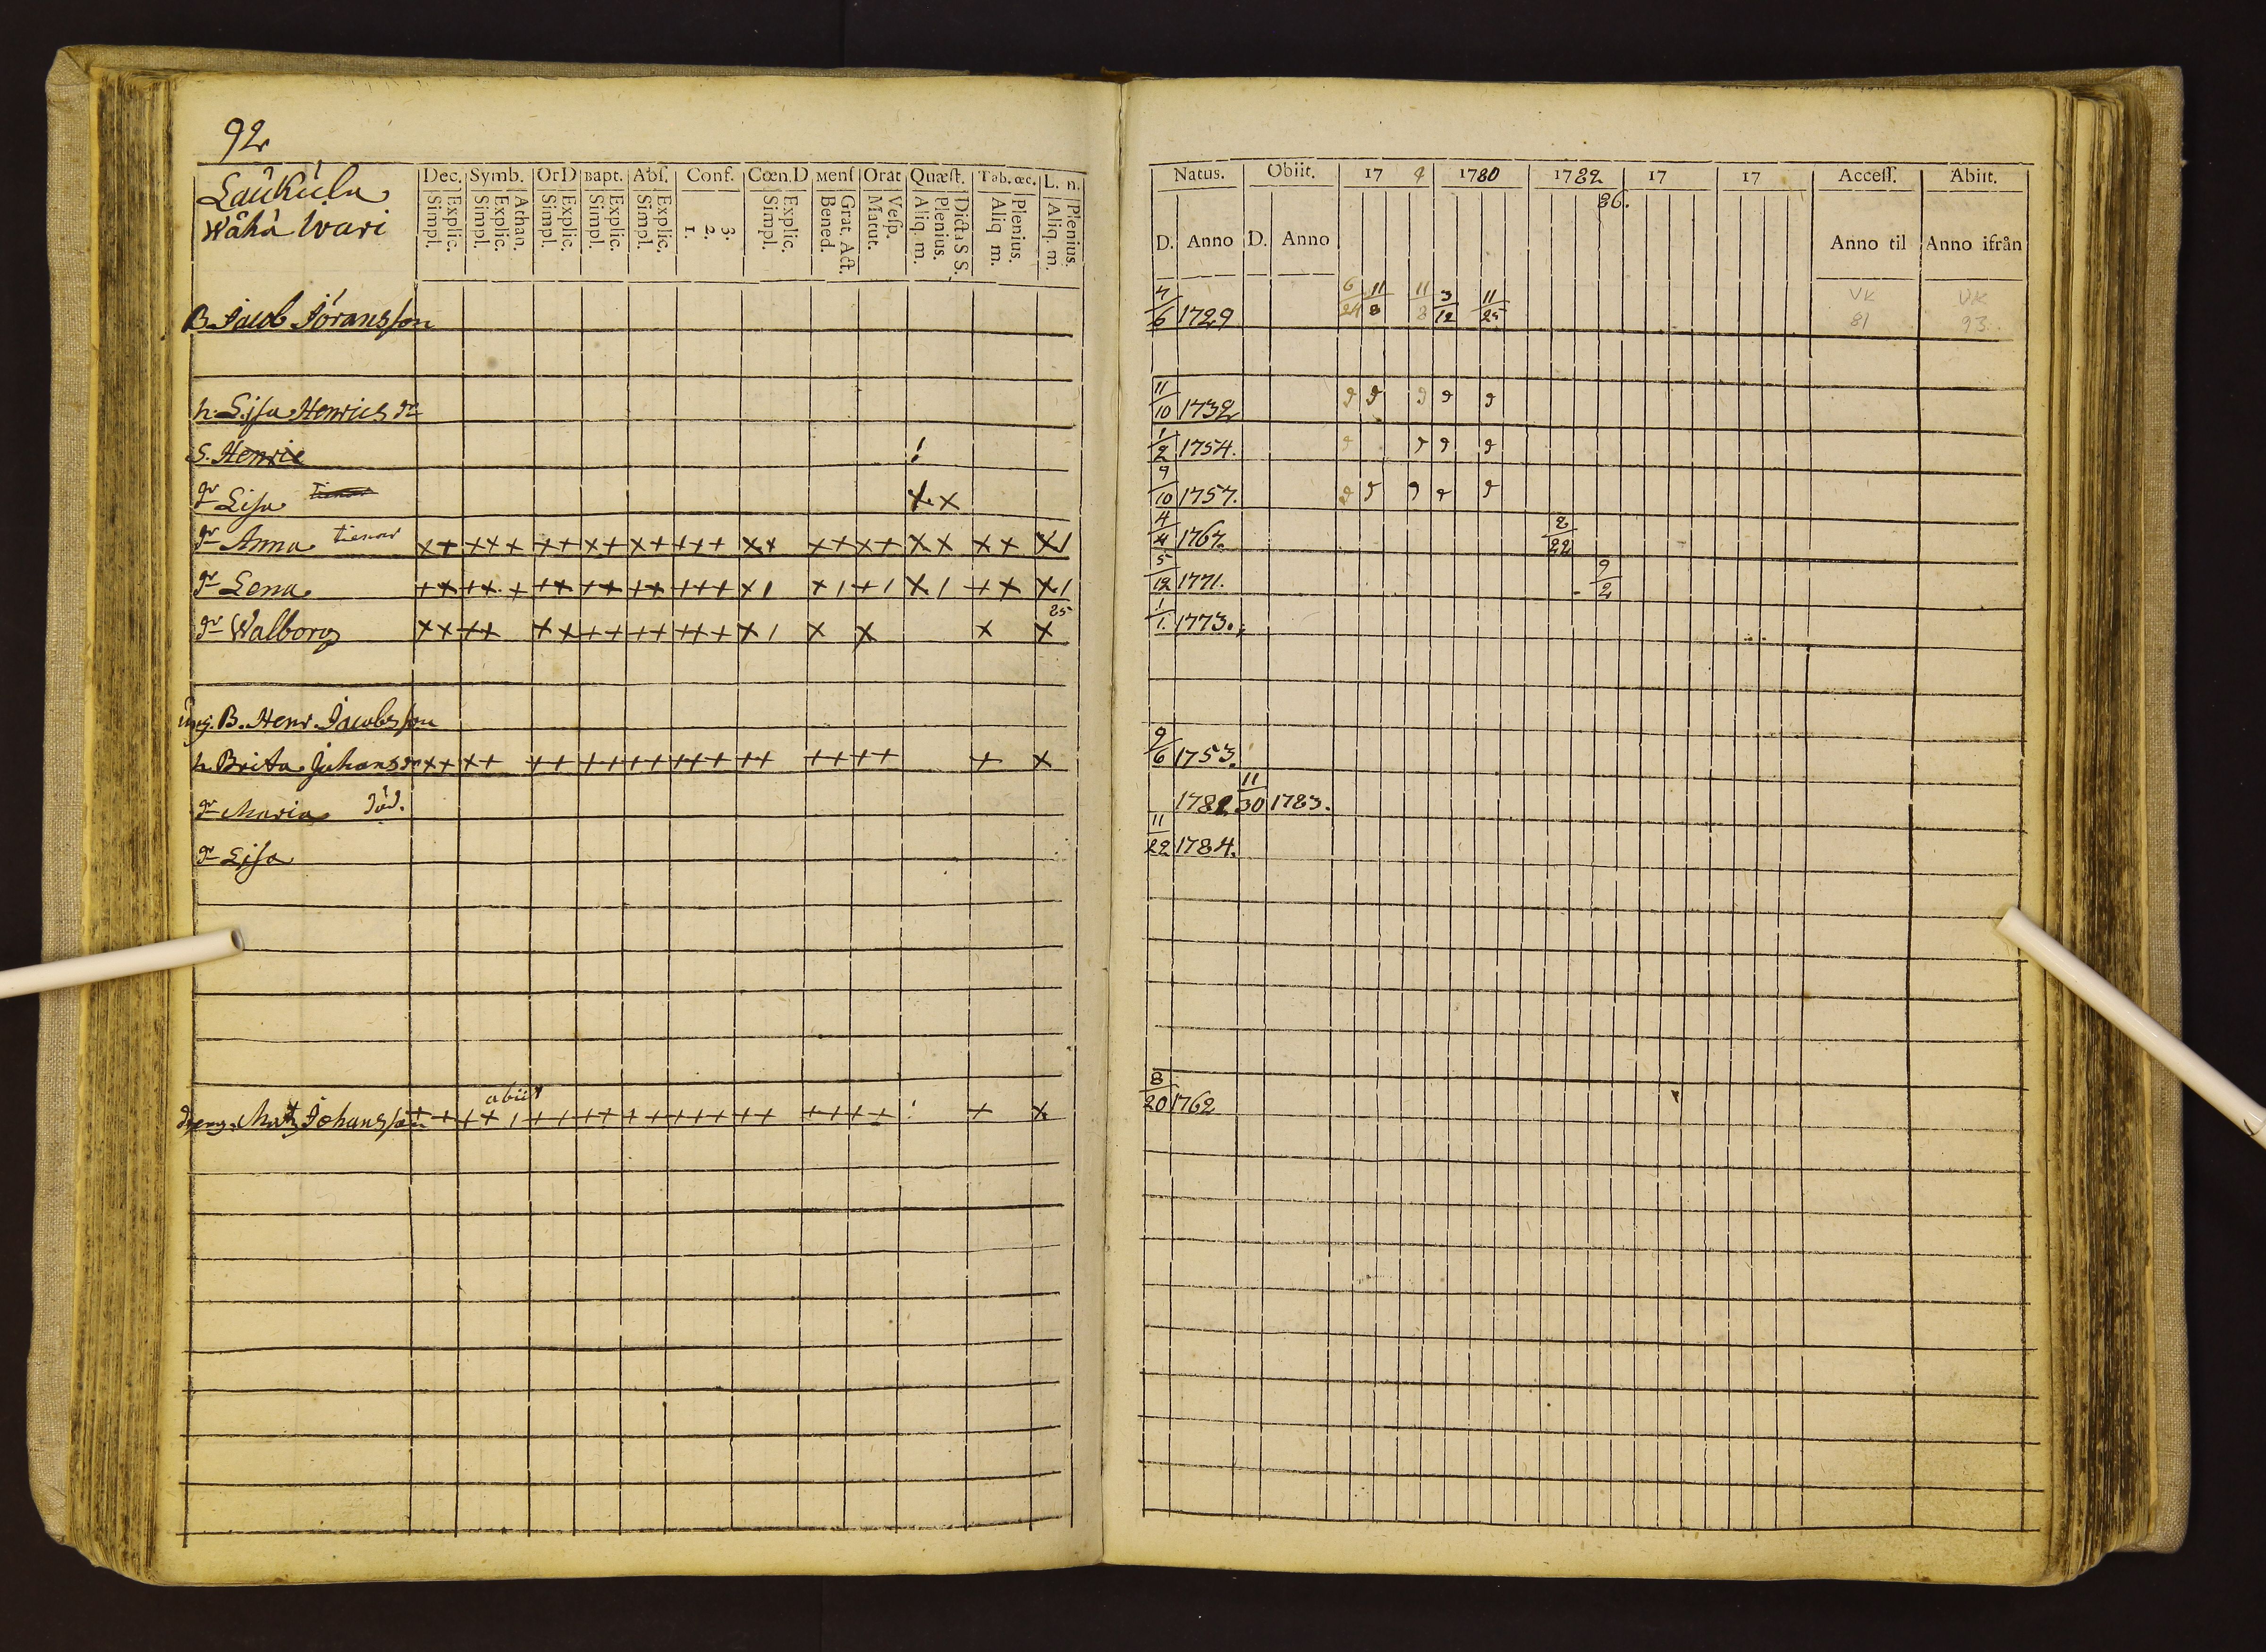 92
Laukula
Wähä Wari
Dec. Symb. Or D Bapt. Abs. Conf. Cœn.D Mens Orat Quæst. Tab. œc. L. n.
Explic. Simpl. Athan. Explic. Simpl. Explic. Simpl. Explic. Simpl. Explic. Simpl. 3. 2. 1. Explic. Simpl. Grat. Act. Bened. Vesp. Matut. Dicta S S. Plenius. Aliq. m. Plenius. Aliq m. Plenius. Aliq. m.
B. Jacob Jöransson
h. Lisa Henrics dr
S. Henric !
dr Lisa x x
dr Anna tienar ++ +++ ++ ++ ++ +++ ++ ++ ++ ++ ++ + 1
dr Lena ++ +++ ++ ++ ++ +++ + 1 + 1 + 1 + 1 ++ + 1
25
dr Walborg ++ ++ ++ ++ ++ +++ + 1 + + + +
B. Henr. Jacobsson
h Brita Johans dr ++ ++ ++ ++ ++ +++ ++ ++ ++ + +
dr Maria död.
dr Lisa
abiit
dreng. Matts Johansson ++ ++ 1 ++ ++ ++ +++ ++ ++ ++ ! + +
Natus. Obiit. 17 1780 1782 17 17 Access. Abiit.
86.
D. Anno D. Anno Anno til Anno ifrån
7/6 1729 6/24 11/8 11/8 3/12 11/25 VK 81 VK 93
11/10 1732
1/2 1754.
9/10 1757.
4/4 1767. 2/22
5/12 1771. 9/2
1/1. 1773.
9/6 1753.
1782 11/30 1783.
11/22 1784.
8/20 1762